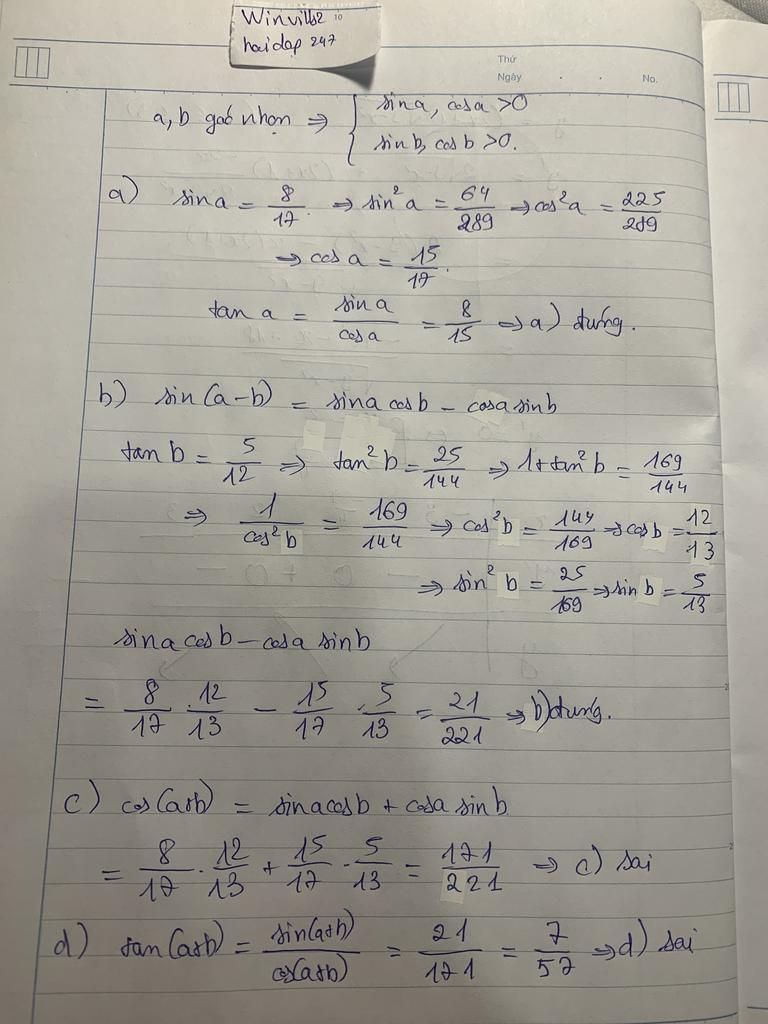 Winvills2 10
hoidap 247
Thứ
Ngày . . No.
a, b góc nhọn ⇒ { sina, cosa >0
sinb, cosb >0.
a) sina = 8/17 ⇒ sin² a = 64/289 ⇒ cos²a = 225/289
⇒ cosa = 15/17.
tan a = sina/cosa = 8/15 ⇒ a) đúng.
b) sin(a-b) = sina cosb - cosa sinb
tan b = 5/12 ⇒ tan² b = 25/144 ⇒ 1+tan²b = 169/144
⇒ 1/cos²b = 169/144 ⇒ cos²b = 144/169 ⇒ cosb = 12/13
⇒ sin² b = 25/169 ⇒ sin b = 5/13
sina cosb - cosa sinb
= 8/17 . 12/13 - 15/17 . 5/13 = 21/221 ⇒ b) đúng.
c) cos(a+b) = sinacosb + cosa sinb
= 8/17 . 12/13 + 15/17 . 5/13 = 171/221 ⇒ c) sai
d) tan(a+b) = sin(a+b)/cos(a+b) = 21/171 = 7/57 ⇒ d) sai